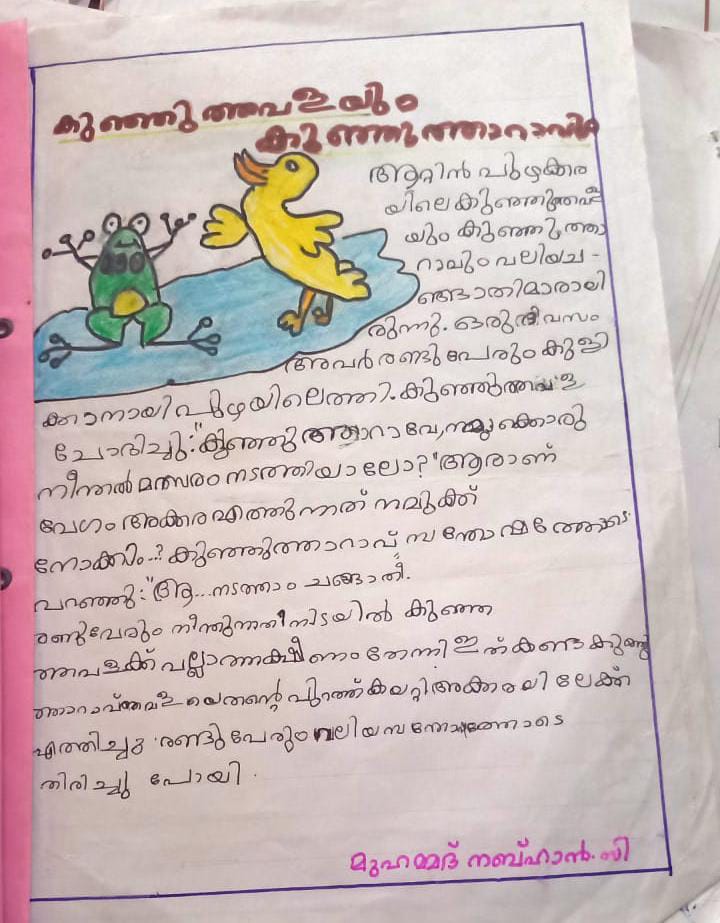 കുഞ്ഞുതവളയും
കുഞ്ഞുത്താറാവും
ആറ്റിൻ പുഴക്കര
യിലെ കുഞ്ഞുതവള
യും കുഞ്ഞുത്താ
റാവും വലിയച -
ങ്ങാതിമാരായി
രുന്നു. ഒരു ദിവസം
അവർ രണ്ടു പേരും കുളി
ക്കാനായി പുഴയിലെത്തി. കുഞ്ഞുത്തവള
ചോദിച്ചു: "കുഞ്ഞു ത്താറാവേ, നമുക്കൊരു
നീന്തൽ മത്സരം നടത്തിയാലോ? "ആരാണ്
വേഗം അക്കര എത്തുന്നത് നമുക്ക്
നോക്കാം..? കുഞ്ഞുത്താറാവ് സന്തോഷത്തോടെ
പറഞ്ഞു: "ആ... നടത്താം ചങ്ങാതീ.
രണ്ടുപേരും നീന്തുന്നതിനിടയിൽ കുഞ്ഞു
ത്തവളക്ക് വല്ലാത്തക്ഷീണം തോന്നി ഇത് കണ്ട കുഞ്ഞു
ത്താറാവ് തവളയെ തന്റെ പുറത്ത് കയറ്റി അക്കരയിലേക്ക്
എത്തിച്ചു. രണ്ടു പേരും വലിയ സന്തോഷത്തോടെ
തിരിച്ചു പോയി.
മുഹമ്മദ് നബ്ഹാൻ. സി